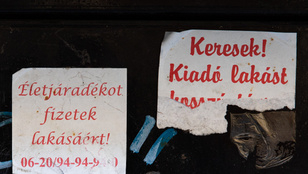 Életjáradékot
fizetek
lakásáért!
06-20/94-94-9
Keresek!
Kiadó lakást